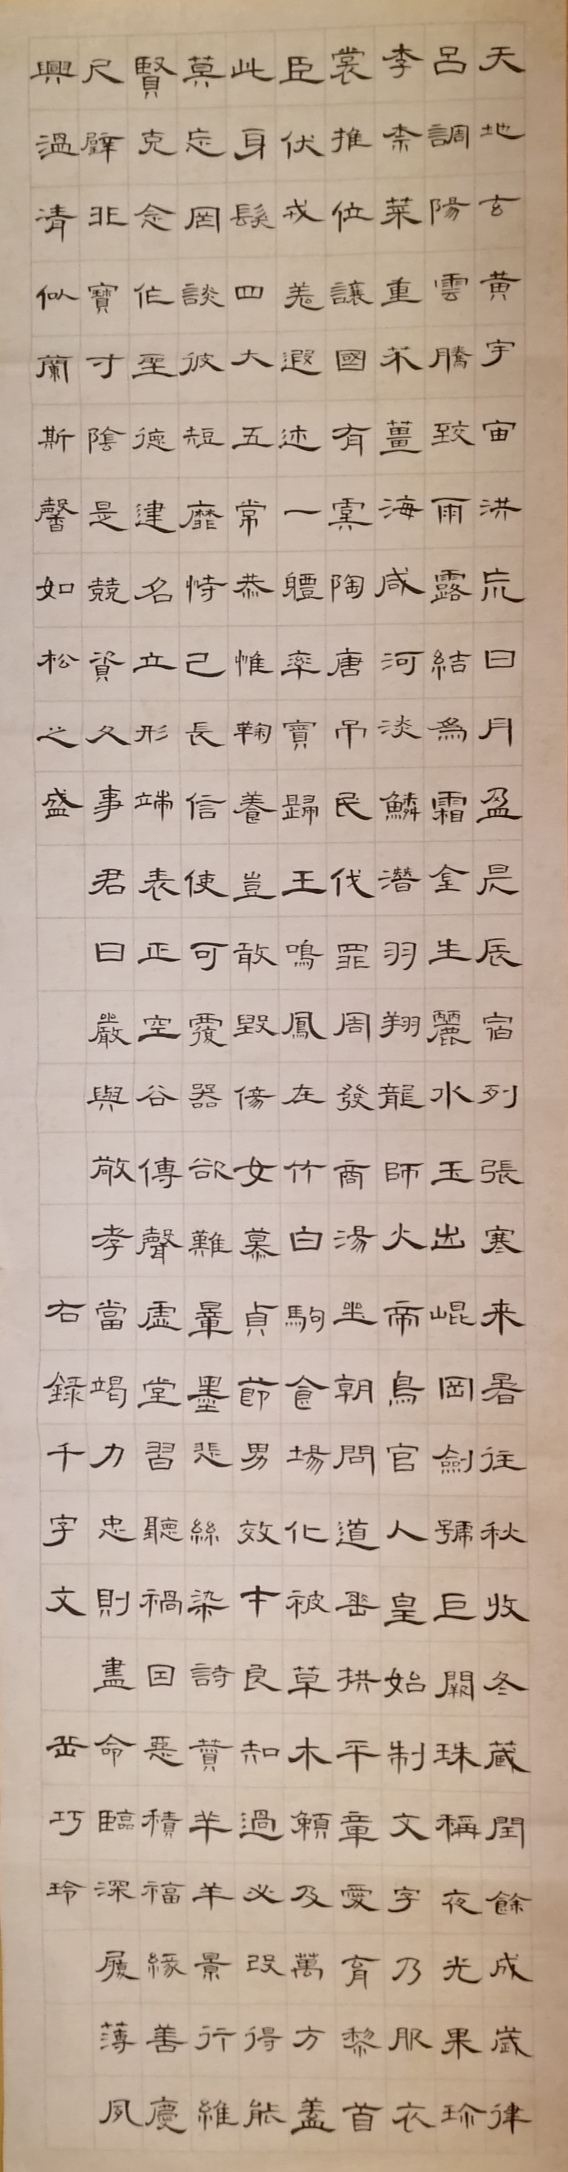 天地玄黄宇宙洪荒日月盈昃辰宿列張寒来暑往秋收冬藏閏餘成歲律
呂調陽雲騰致雨露結為霜金生麗水玉出崐岡劍號巨闕珠稱夜光果珍
李柰菜重芥薑海咸河淡鱗潛羽翔龍師火帝鳥官人皇始制文字乃服衣
裳推位讓國有虞陶唐吊民伐罪周發商湯坐朝問道垂拱平章愛育黎首
臣伏戎羌遐迩一體率賓歸王鳴鳳在竹白駒食場化被草木賴及萬方蓋
此身髮四大五常恭惟鞠養豈敢毀傷女慕貞節男效才良知過必改得能
莫忘罔談彼短靡恃己長信使可覆器欲難量墨悲絲染詩贊羔羊景行維
賢克念作聖德建名立形端表正空谷傳聲虛堂習聽禍因惡積福緣善慶
尺璧非寶寸陰是競資父事君曰嚴與敬孝當竭力忠則盡命臨深履薄夙
興溫清似蘭斯馨如松之盛 右録千字文 岳巧玲